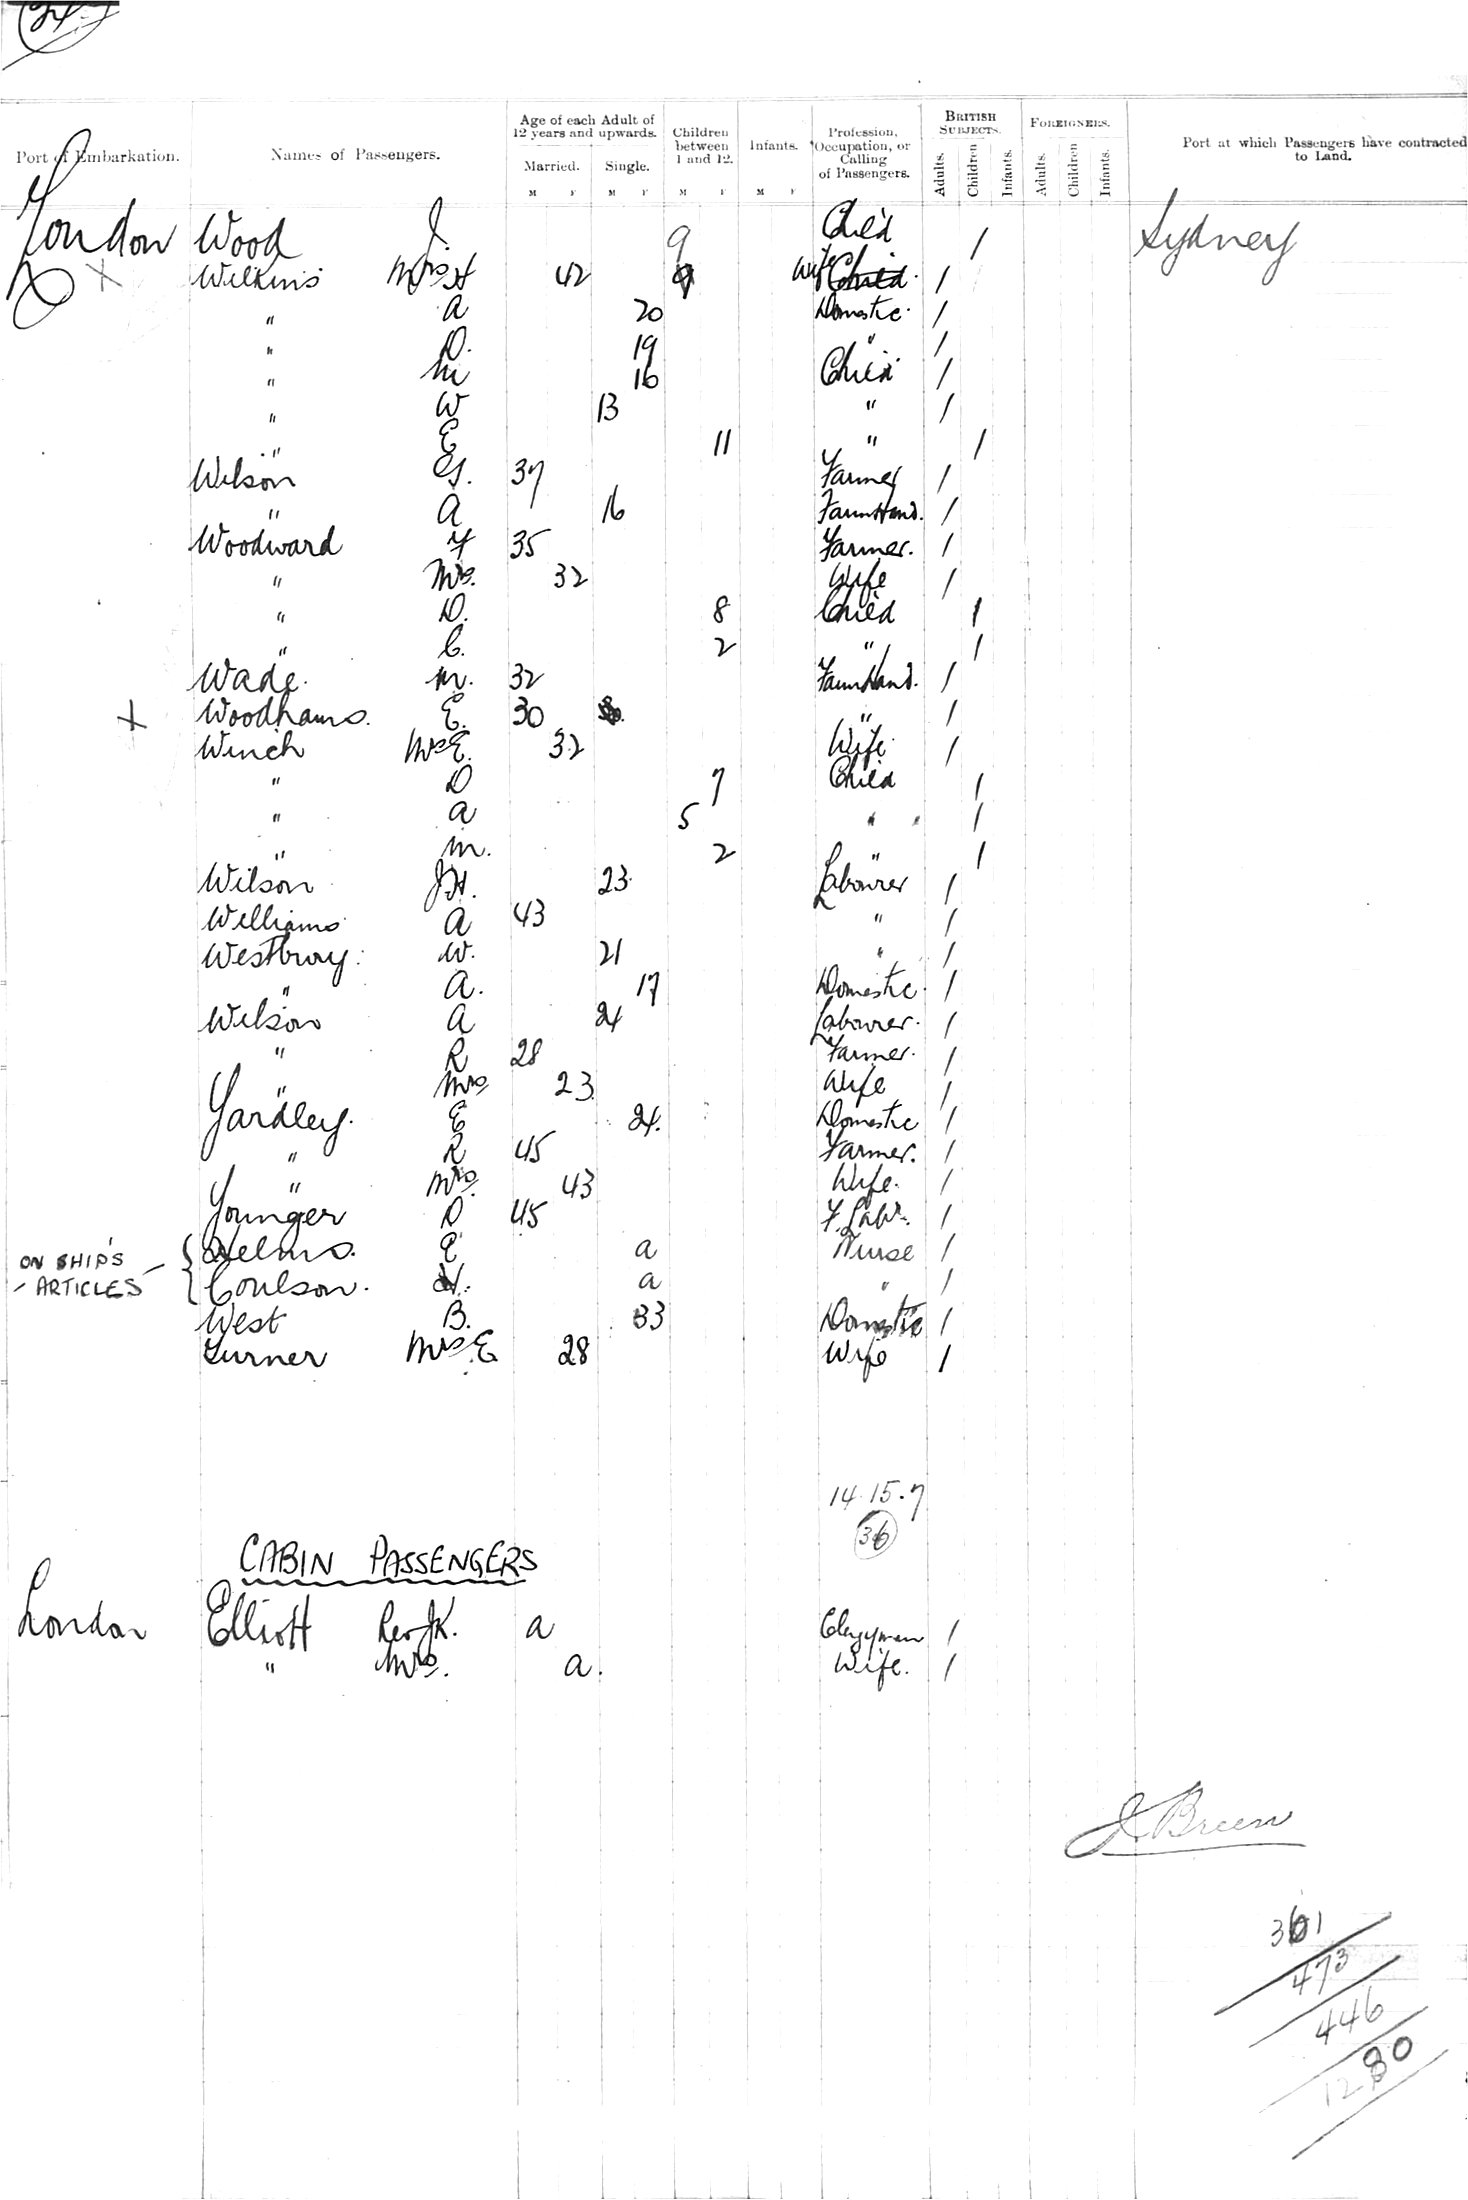 24
Port of Embarkation. Names of Passengers. Age of each Adult of 12 years and upwards. Married. Single. Children between 1 and 12. Infants. Profession, Occupation, or Calling of Passengers. British Subjects. Foreigners. Port at which Passengers have contracted to Land.
M F M F M F M F Adults. Children Infants. Adults. Children Infants.
London Wood J. 9 Child 1 Sydney
X Wilkins Mrs H 42 9 Wife Child. 1
" A 20 Domestic. 1
" D. 19 " 1
" M 16 Child 1
" W 13 " 1
" E 11 " 1
Wilson G. 37 Farmer 1
" A 16 Farm Hand. 1
Woodward F 35 Farmer. 1
" Mrs. 32 Wife 1
" D. 8 Child 1
" C. 2 " 1
Wade. M. 32 Farm Hand. 1
X Woodhams. E. 30 " 1
Winch Mrs E. 32 Wife. 1
" D 7 Child 1
" A 5 " " 1
" M. 2 " 1
Wilson J H. 23 Labourer 1
Williams A 43 " 1
Westbury. W. 21 " 1
" A. 17 Domestic. 1
Wilson A 24 Labourer. 1
" R 28 Farmer. 1
" Mrs 23 Wife 1
Yardley. E 24. Domestic 1
" R 45 Farmer. 1
" Mrs. 43 Wife. 1
Younger D 45 F. Labr. 1
ON SHIP'S ARTICLES { Helms. E a Nurse 1
Coulson. H. a " 1
West B. 33 Domestic 1
Turner Mrs E 28 Wife 1
14. 15. 7
36
CABIN PASSENGERS
London Elliott Rev J K. a Clergyman 1
" Mrs. a. Wife. 1
J. Breen
361
473
446
1280